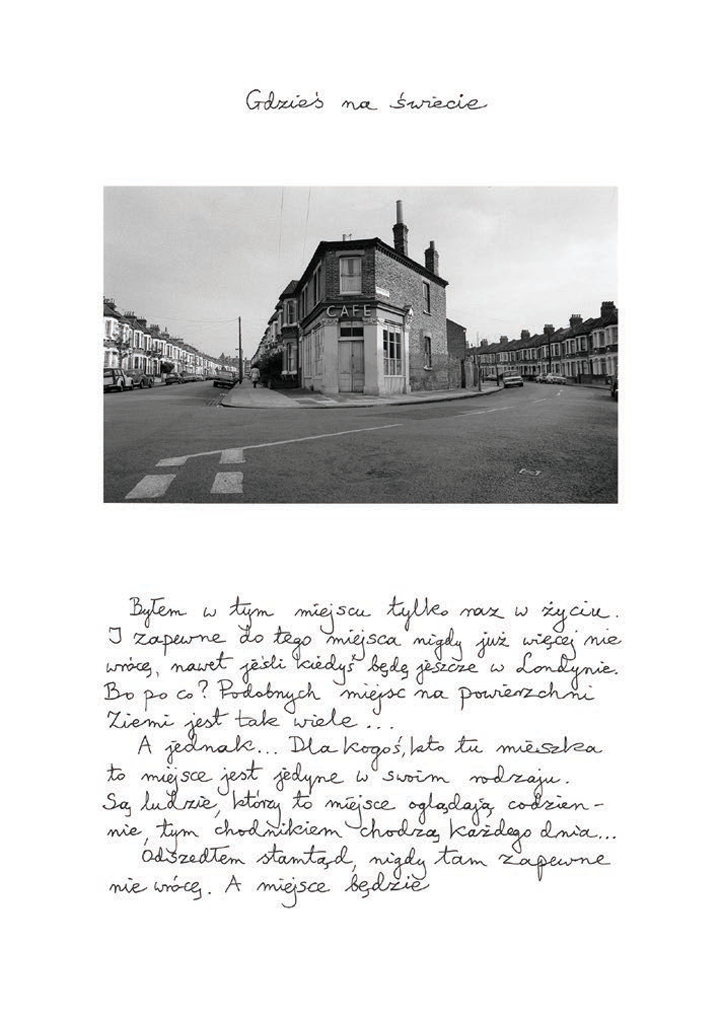 Gdzieś na świecie
CAFE
Byłem w tym miejscu tylko raz w życiu.
I zapewne do tego miejsca nigdy już więcej nie
wrócę, nawet jeśli kiedyś będę jeszcze w Londynie.
Bo po co? Podobnych miejsc na powierzchni
Ziemi jest tak wiele...
A jednak... Dla kogoś, kto tu mieszka
to miejsce jest jedyne w swoim rodzaju.
Są ludzie, którzy to miejsce oglądają codzien-
nie, tym chodnikiem chodzą każdego dnia...
Odszedłem stamtąd, nigdy tam zapewne
nie wrócę. A miejsce będzie